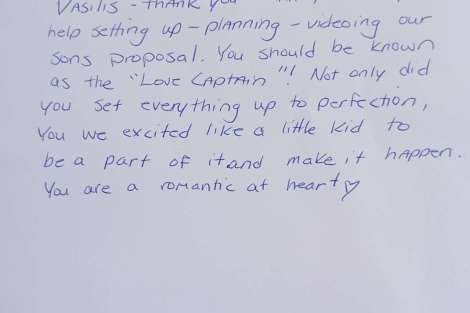 VASILIS - THANK YOU
help setting up - planning - videoing our
sons proposal. You should be known
as the "Love Captain"! Not only did
you set everything up to perfection,
You we excited like a little kid to
be a part of it and make it happen.
You are a romantic at heart♡